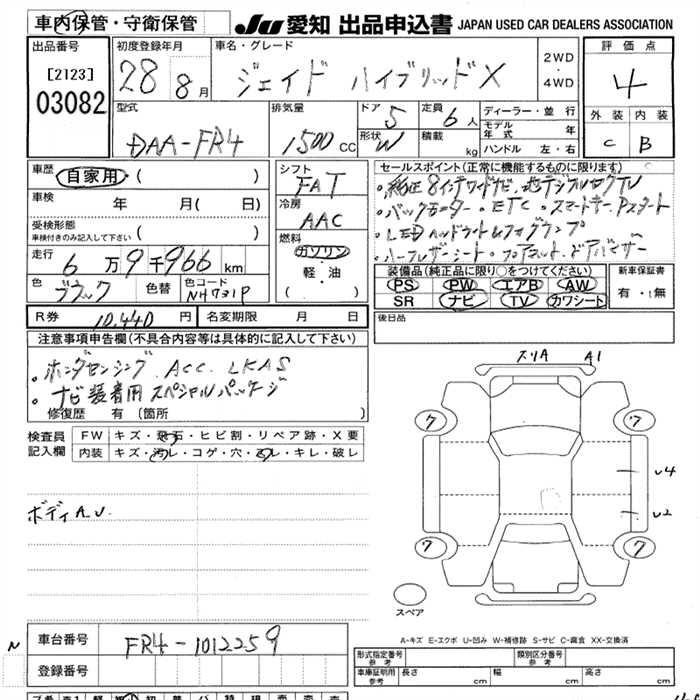 車内保管・守衛保管
JU 愛知 出品申込書 JAPAN USED CAR DEALERS ASSOCIATION
出品番号
[2123]
03082
初度登録年月
28 8月
車名・グレード
ジェイド ハイブリッドX
2WD・4WD
評価点
4
外装 内装
C B
型式
DAA-FR4
排気量
1500 CC
ドア 5
形状 W
定員 6人
積載 kg
ディーラー・並行
モデル年式 年
ハンドル 左・右
車歴
自家用・( )
車検 年 月( 日)
受検形態
車検付きのみ記入して下さい ( )
走行 6万9千966km
色 ブラック 色替 色コード NH731P
シフト
FAT
冷房
AAC
燃料
ガソリン
・軽・油
( )
セールスポイント(正常に機能するものに限ります)
・純正8インチワイドナビ・地デジフルセグTV
・バックモニター・ETC・スマートキー Pスタート
・LEDヘッドライト&フォグランプ
・ハーフレザーシート・フロアマット・ドアバイザー
装備品(純正品に限り○をつけてください)
PS PW エアB AW
SR ナビ TV カワシート
新車保証書
有・無
R券 10,440円 名変期限 月 日
後日品
注意事項申告欄(不具合内容等は具体的に記入して下さい)
・ホンダセンシング ACC LKAS
・ナビ装着用スペシャルパッケージ
修復歴 有 (箇所 )
検査員記入欄
FW キズ・飛石・ヒビ割・リペア跡・X要
内装 キズ・汚レ・コゲ・穴・スレ・キレ・破レ
ボディA.U.
スリA A1
ワ ワ
U4
U2
ワ ワ
スペア
A-キズ E-エクボ U-凹み W-補修跡 S-サビ C-腐食 XX-交換済
N
車台番号 FR4-1012259
登録番号
形式指定番号 参考
類別区分番号 参考
車庫証明用 参考 長さ cm 幅 cm 高さ cm